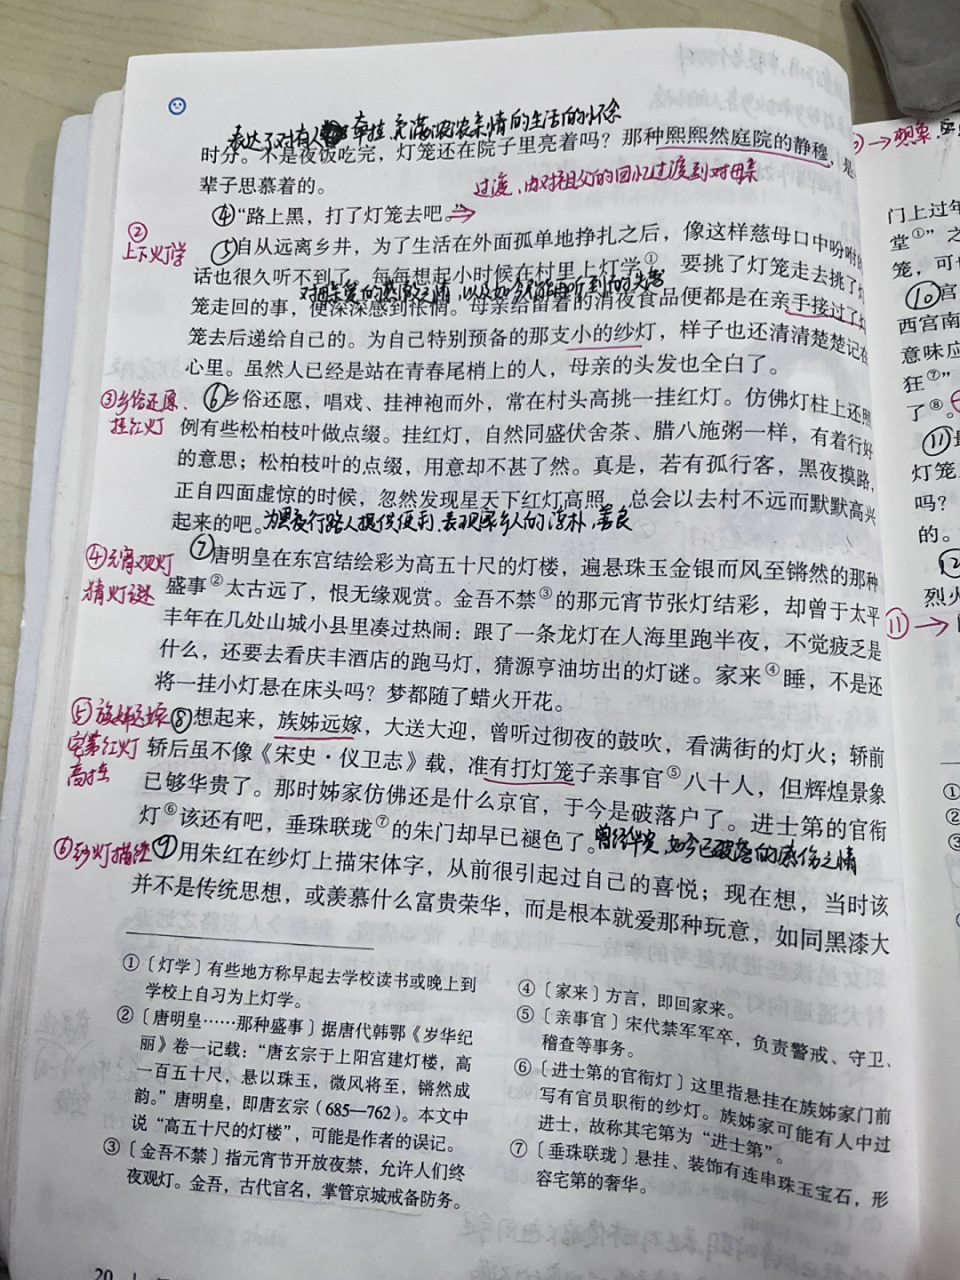 表达了对有人牵挂充满浓浓亲情的生活的怀念
时分。不是夜饭吃完，灯笼还在院子里亮着吗？那种熙熙然庭院的静穆，是
辈子思慕着的。
过渡，由对祖父的回忆过渡到对母亲
④“路上黑，打了灯笼去吧。”
②
上下灯学
⑤自从远离乡井，为了生活在外面孤单地挣扎之后，像这样慈母口中吩咐的
话也很久听不到了。每每想起小时候在村里上灯学①，要挑了灯笼走去挑了灯
对母亲爱的感激之情，以及如今不能再听到的失落
笼走回的事，便深深感到怅惘。母亲给留着的消夜食品便都是在亲手接过了灯
笼去后递给自己的。为自己特别预备的那支小的纱灯，样子也还清清楚楚记在
心里。虽然人已经是站在青春尾梢上的人，母亲的头发也全白了。
③乡俗还愿、
挂红灯
⑥乡俗还愿，唱戏、挂神袍而外，常在村头高挑一挂红灯。仿佛灯柱上还照
例有些松柏枝叶做点缀。挂红灯，自然同盛伏舍茶、腊八施粥一样，有着行好
的意思；松柏枝叶的点缀，用意却不甚了然。真是，若有孤行客，黑夜摸路，
正自四面虚惊的时候，忽然发现星天下红灯高照，总会以去村不远而默默高兴
起来的吧。为黑夜行路人提供便利，表现家乡人的淳朴、善良
④元宵观灯
猜灯谜
⑦唐明皇在东宫结绘彩为高五十尺的灯楼，遍悬珠玉金银而风至锵然的那种
盛事②太古远了，恨无缘观赏。金吾不禁③的那元宵节张灯结彩，却曾于太平
丰年在几处山城小县里凑过热闹：跟了一条龙灯在人海里跑半夜，不觉疲乏是
什么，还要去看庆丰酒店的跑马灯，猜源亨油坊出的灯谜。家来④睡，不是还
将一挂小灯悬在床头吗？梦都随了蜡火开花。
⑤族姊远嫁
宅第红灯
高挂
⑧想起来，族姊远嫁，大送大迎，曾听过彻夜的鼓吹，看满街的灯火；轿前
轿后虽不像《宋史·仪卫志》载，准有打灯笼子亲事官⑤八十人，但辉煌景象
已够华贵了。那时姊家仿佛还是什么京官，于今是破落户了。进士第的官衔
灯⑥该还有吧，垂珠联珑⑦的朱门却早已褪色了。曾经华贵，如今已破落的感伤之情
⑥纱灯描红
⑨用朱红在纱灯上描宋体字，从前很引起过自己的喜悦；现在想，当时该
并不是传统思想，或羡慕什么富贵荣华，而是根本就爱那种玩意，如同黑漆大
①〔灯学〕有些地方称早起去学校读书或晚上到
学校上自习为上灯学。
②〔唐明皇……那种盛事〕据唐代韩鄂《岁华纪
丽》卷一记载：“唐玄宗于上阳宫建灯楼，高
一百五十尺，悬以珠玉，微风将至，锵然成
韵。”唐明皇，即唐玄宗（685—762）。本文中
说“高五十尺的灯楼”，可能是作者的误记。
③〔金吾不禁〕指元宵节开放夜禁，允许人们终
夜观灯。金吾，古代官名，掌管京城戒备防务。
④〔家来〕方言，即回家来。
⑤〔亲事官〕宋代禁军军卒，负责警戒、守卫、
稽查等事务。
⑥〔进士第的官衔灯〕这里指悬挂在族姊家门前
写有官员职衔的纱灯。族姊家可能有人中过
进士，故称其宅第为“进士第”。
⑦〔垂珠联珑〕悬挂、装饰有连串珠玉宝石，形
容宅第的奢华。
20
→想象
门上过年
堂①”之
笼，可
⑩宫
西宫南
意味应
狂⑦”
了⑧。
⑪
灯笼
吗？
的。
⑫
烈火
⑪→
①
②
③